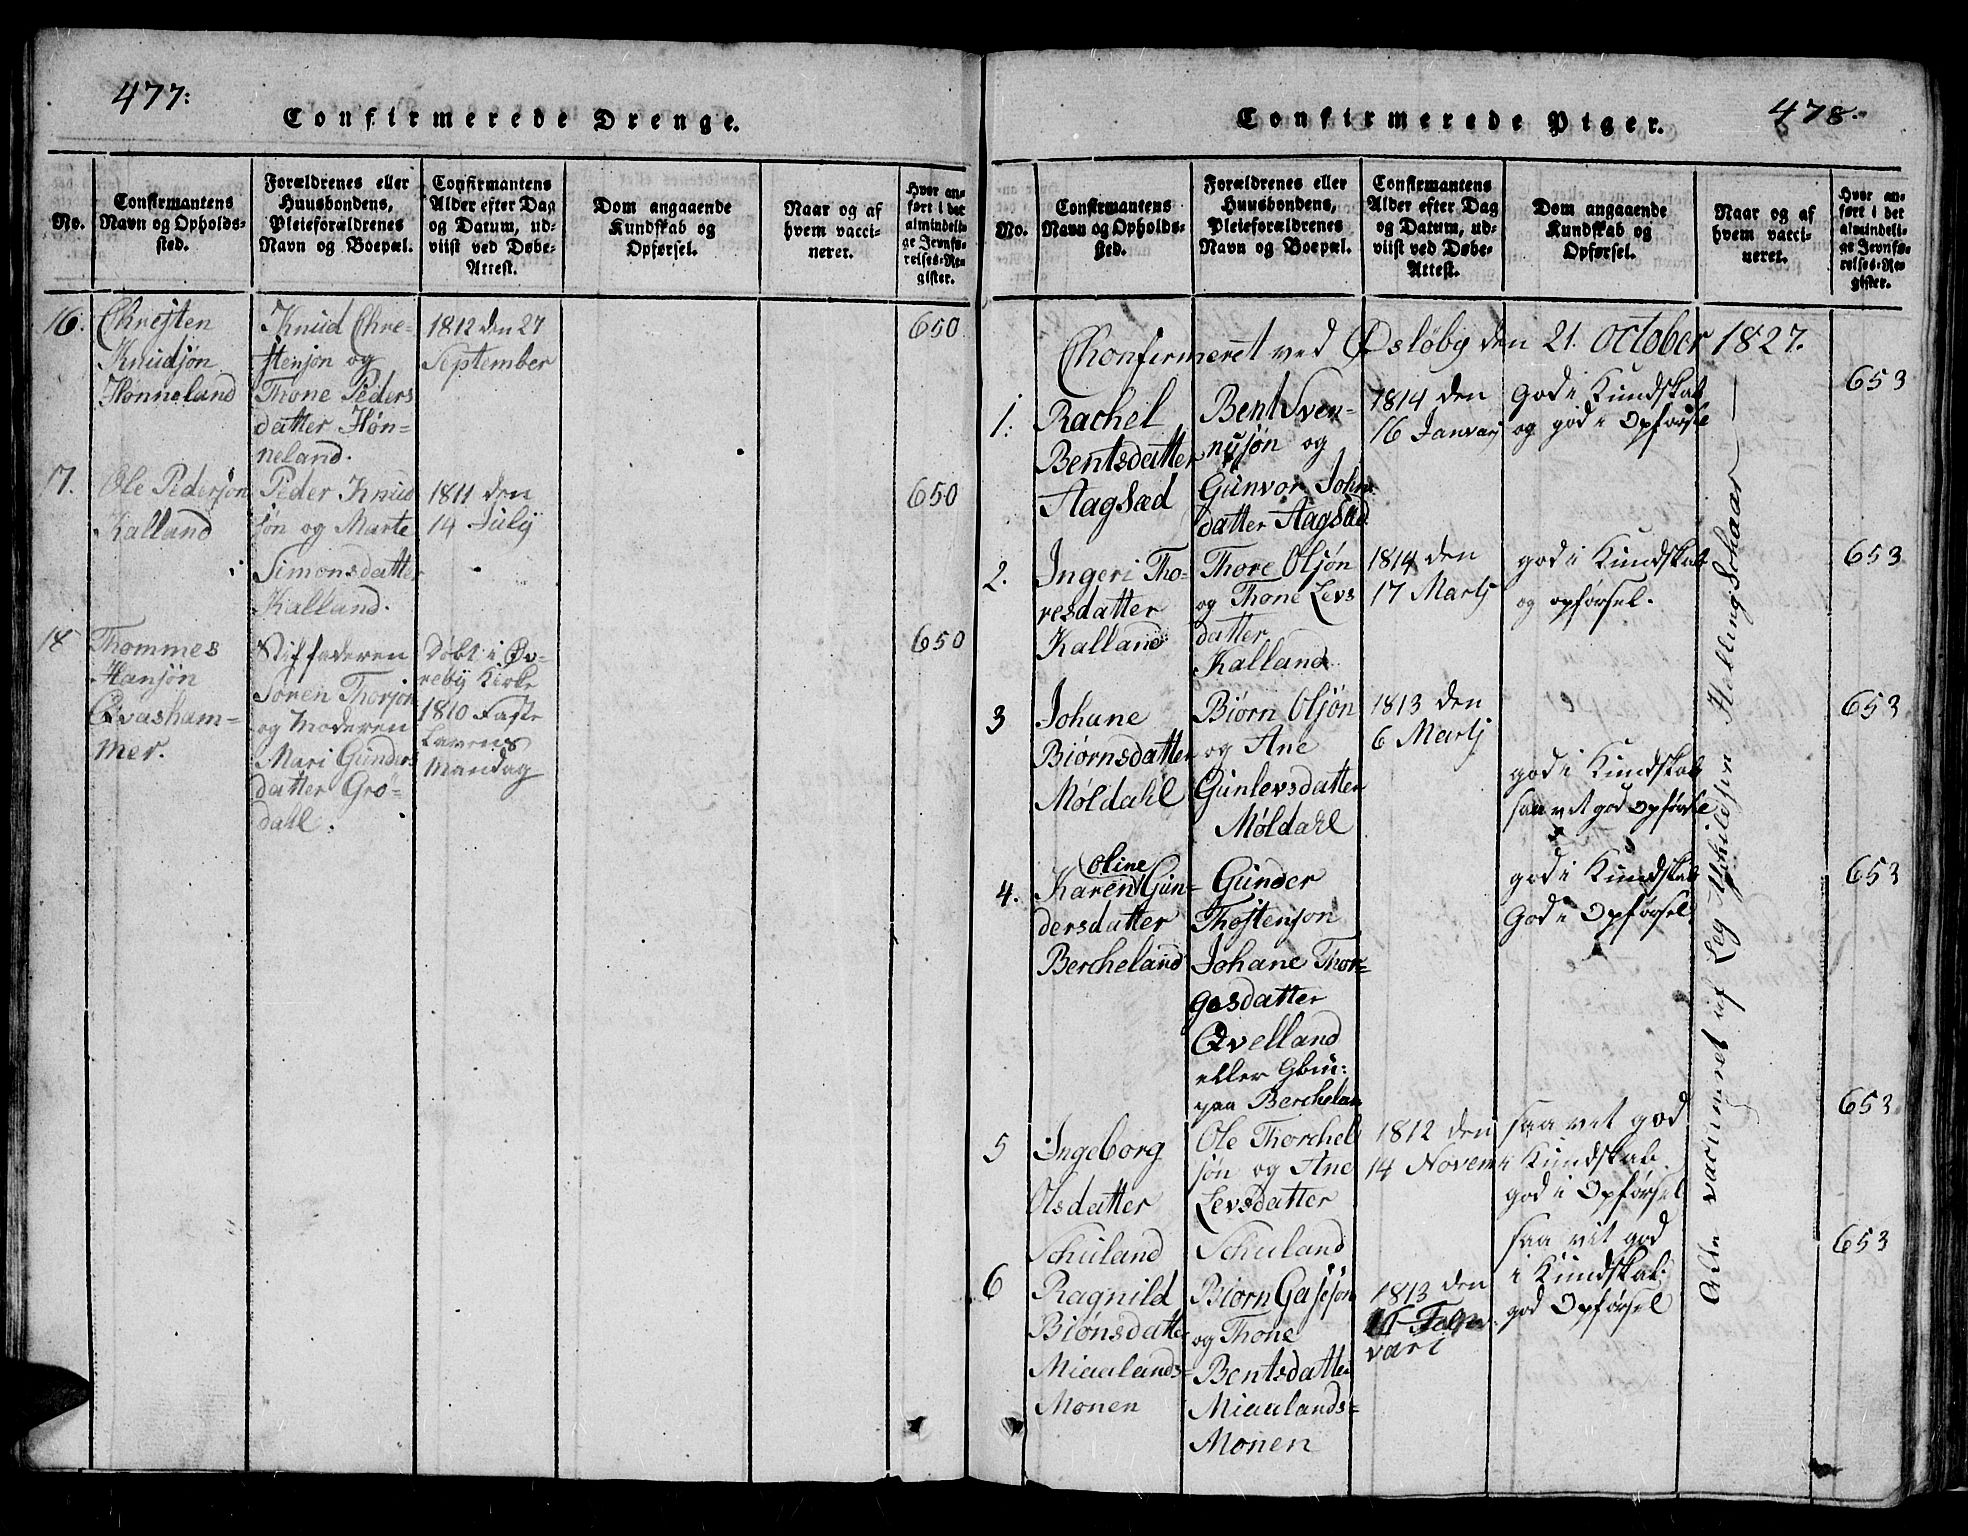 477:
Confirmerede Drenge.
No.
Confirmantens
Navn og Opholds-
sted.
Forældrenes eller
Huusbondens,
Pleieforældrenes
Navn og Boepæl.
Confirmantens
Alder efter Dag
og Datum, ud-
viist ved Døbe-
Attest.
Dom angaaende
Kundskab og
Opførsel.
Naar og af
hvem vacci-
neret.
Hvor an-
ført i det
almindeli-
ge Jevnfø-
relses-Re-
gister.
16.
Chresten
Knudsøn
Hønneland
Knud Chre-
stensøn og
Thone Peders
datter Høn-
neland.
1812 den 27
September
650
17.
Ole Pedersøn
Kalland
Peder Knud
søn og Marte
Simonsdatter
Kalland.
1811 den
14 July
650
18
Thommes
Hansøn
Qvasham-
mer.
Stiffaderen
Soren Thorsøn
og Moderen
Mari Gunders
datter Grø-
dahl.
Døbt i Øv-
rebÿ Kirke
1810 Faste
Lavens
Mandag
650
478.
Confirmerede Piger.
No.
Confirmantens
Navn og Opholds-
sted.
Forældrenes eller
Huusbondens,
Pleieforældrenes
Navn og Boepæl.
Confirmantens
Alder efter Dag
og Datum, ud-
viist ved Døbe-
Attest.
Dom angaaende
Kundskab og
Opførsel.
Naar og af
hvem vacci-
neret.
Hvor an-
ført i det
almindeli-
ge Jevnfø-
relses-Re-
gister.
Chonfirmeret ved Øsløby den 21. October 1827.
1.
Rachel
Bentsdatter
Aagsæd
Bent Sven-
nusøn og
Gunvor Johns
datter Aagsæd
1814 den
16 Januarj
god i Kundskab
og god i Opførsel
653
2.
Ingeri Tho-
resdatter
Kalland
Thore Olsøn
og Thone Levs
datter
Kalland
1814 den
17 Martj
god i Kundskab
og opførsel.
653
3
Johane
Biørnsdatter
Møldahl
Biørn Olsøn
og Ane
Gunlevsdatter
Møldahl
1813 den
6 Martj
god i Kundskab
saavel god opførsel
653
4.
Oline
Karen Gun-
dersdatter
Bercheland
Gunder
Thostensøn
Johane Thor-
gesdatter
Qvelland
eller
paa Berchelan
god i Kundskab
God i Opførsel
653
5
Ingeborg
Olsdatter
Schuland
Ole Thorchel
søn og Ane
Levsdatter
Schuland
1812 den
14 Novem
saavel god
i Kundskab
god i Opførsel
653
6
Ragnild
Biønsdatte
Miaalands-
Monen
Biørn Gasesøn
og Thone
Bentsdatter
Miaalands-
Monen
1813 den
16 Febr
vari
saavel god
i Kundskab
god Opførsel
653
Alle vacineret af